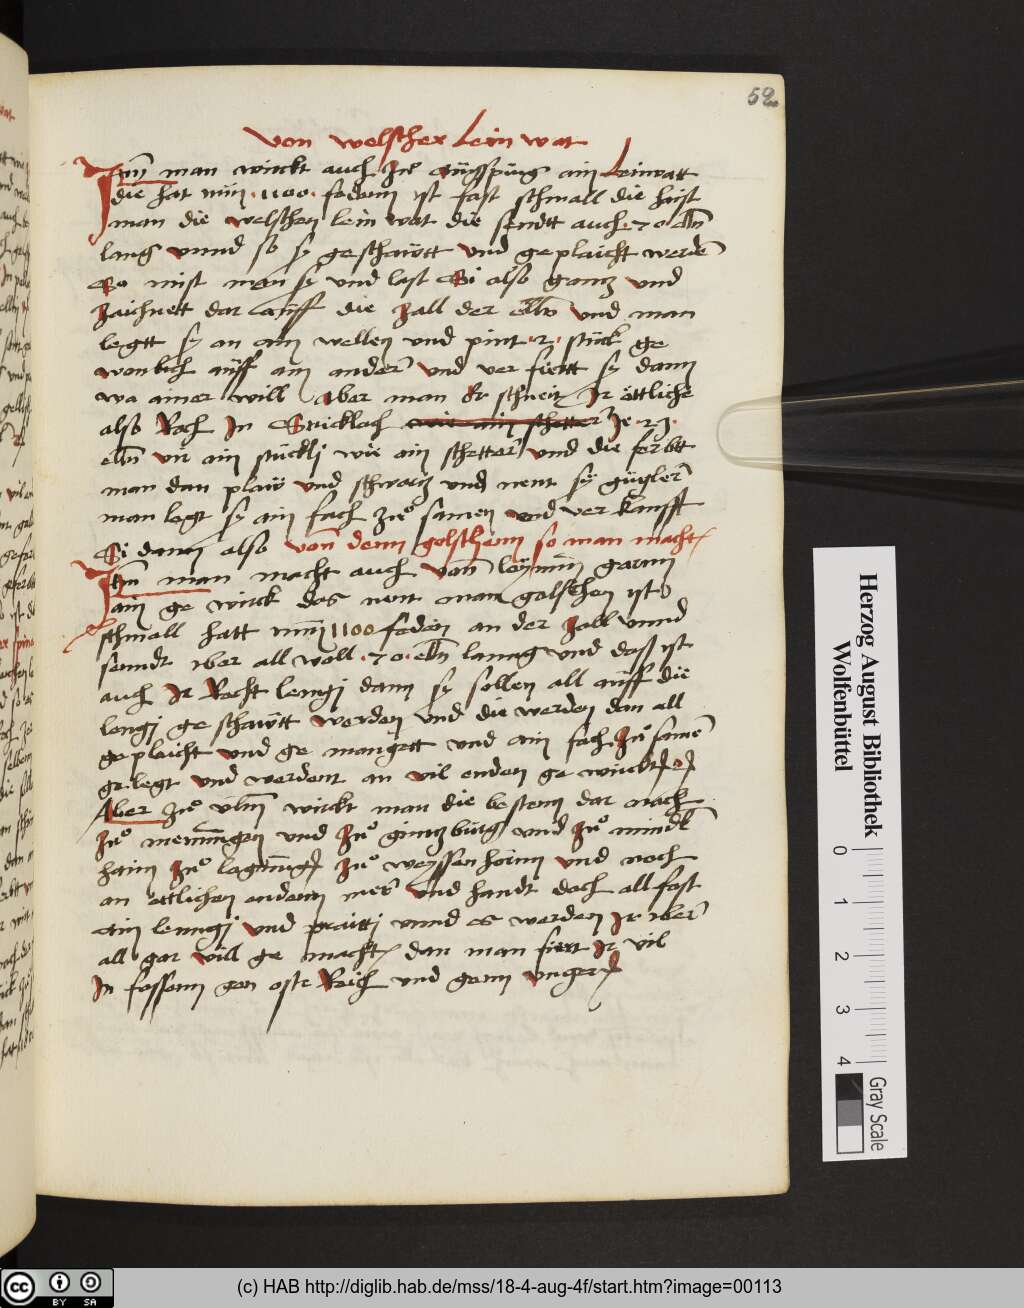 52
von welscher Lein wat
Item man wirckt auch zuo augspurg ain Leinwatt
die hat nun 1100 fedem ist fast schmall die haist
man die welschen lein wat die sendtt auch 70 elln
lang vnnd so sy geschawtt vnd geplaicht werden
So mist man sy vnd last Si also gantz vnd
Zaichnett dar auff die zall der elln vnd man
legtt sy an ain wellen vnd pint 2 stuck ge
wonlich auff ain ander vnd ver fiertt sy dann
wa ainer will Aber man Ir ettliche
also Roch In Stucklach wie ain schetter Je
elln vir ain stucklj wie ain schetter vnd die ferbtt
man dan plaw vnd schwartz vnd nent sy gugler
man legt sy ain fach zuo samen vnd ver kaufft
Si dann also von denn golschenn so man macht
Item man macht auch von leynnin garnn
ain ge wirck das nent man golschen ist
schmall hatt nun 1100 feden an der zall vnnd
senndt iber all woll 70 elln lanng vnd dass ist
auch Ir Recht lengj dann sy sollen all auff die
lengj ge schawtt werden vnd die werden dan all
geplaicht vnd ge mangett vnd ain fach zuo samen
gelegt vnd werdent an vil enden ge wirckt
Aber zuo vlm wirckt man die besten dar nach
zuo memingen vnd zuo gintzburg vnd zuo mindl
haim zuo laginng zuo weyssenhornn vnd noch
an ettlichen endenn mer vnd handt doch all fast
ain lenngj vnd praittj vnnd es werden Ir iber
all gar vill ge macht dan man fiert Ir vil
In fossonn gen oste Reich vnd genn vnger
Herzog August Bibliothek
Wolfenbüttel
0 1 2 3 4
Gray Scale
cc BY SA
(c) HAB http://diglib.hab.de/mss/18-4-aug-4f/start.htm?image=00113